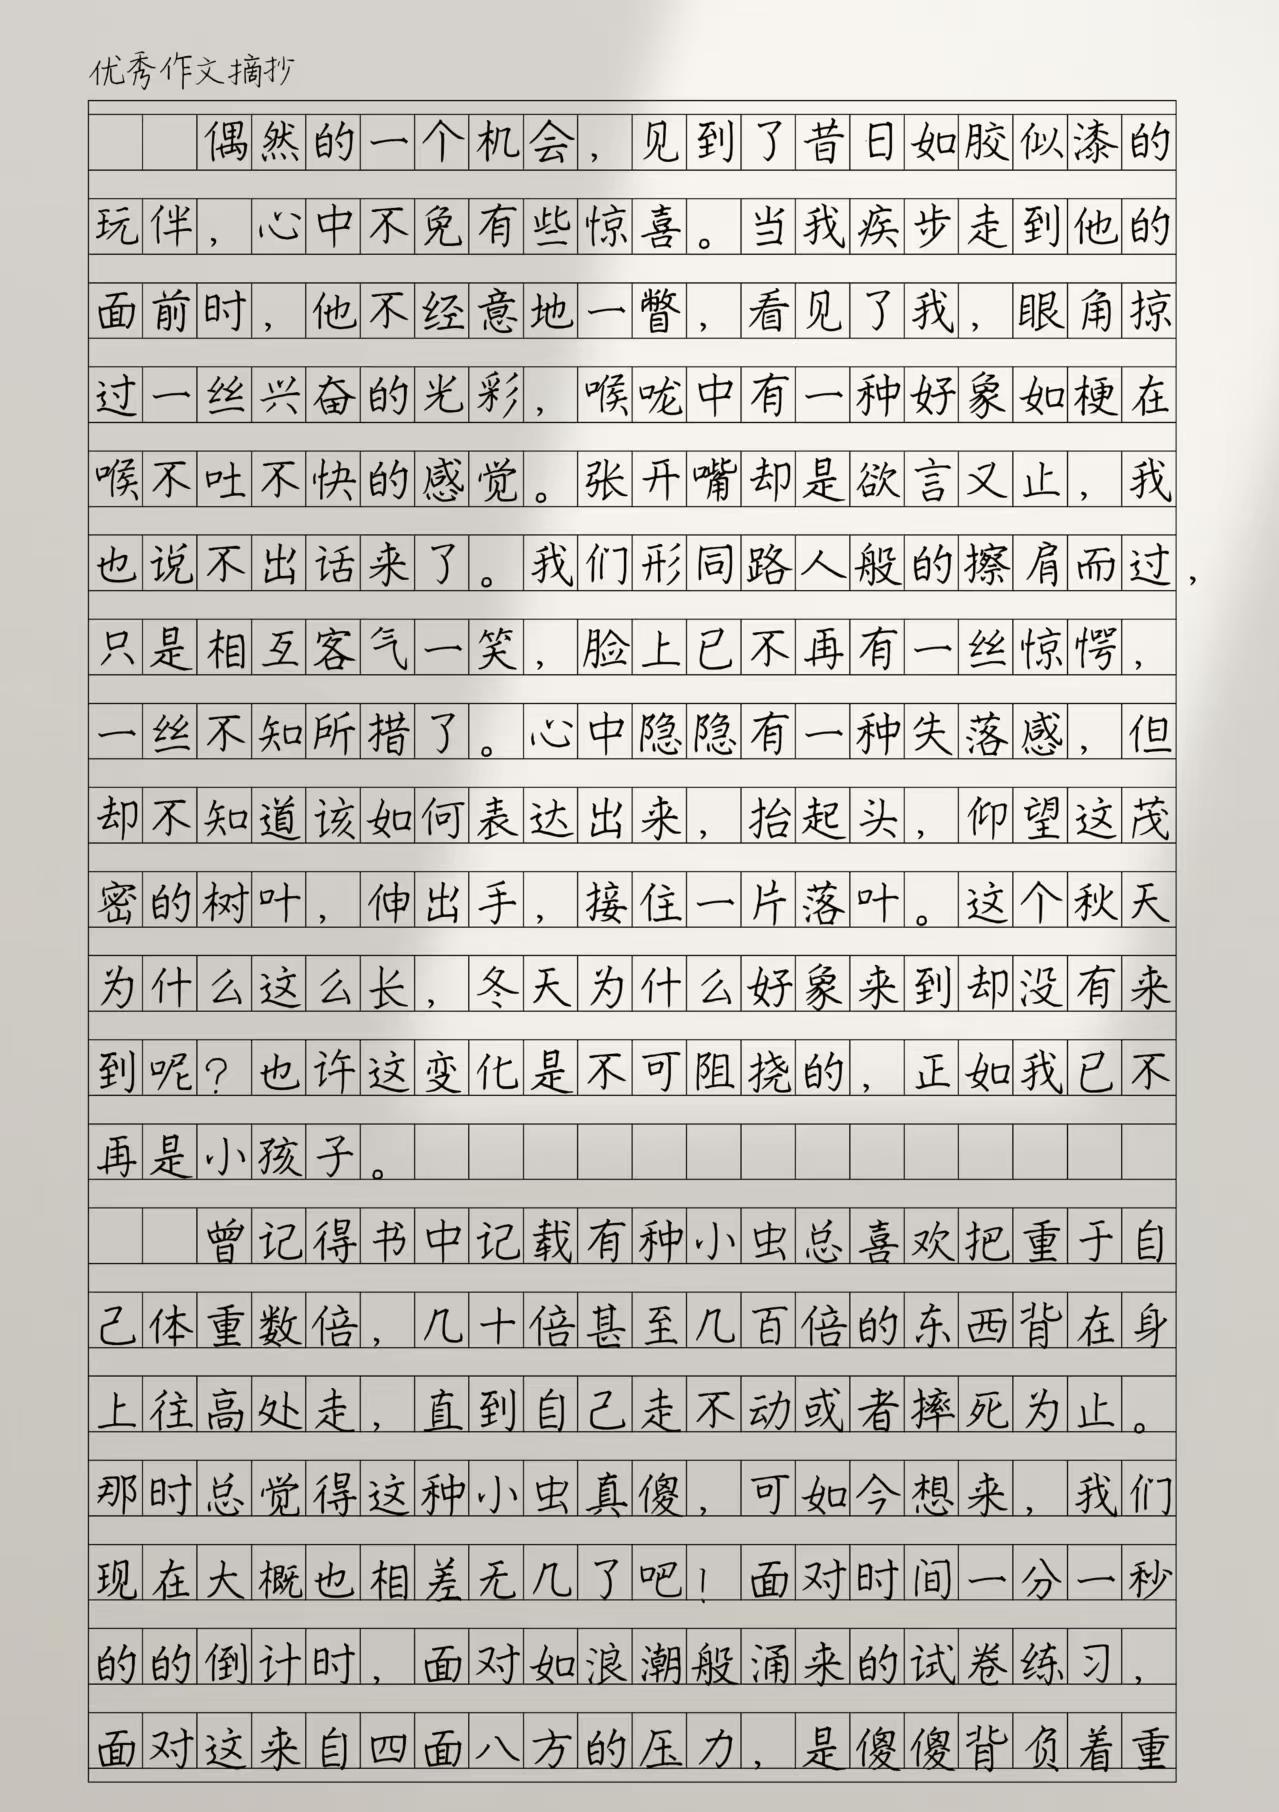 优秀作文摘抄
偶然的一个机会，见到了昔日如胶似漆的
玩伴，心中不免有些惊喜。当我疾步走到他的
面前时，他不经意地一瞥，看见了我，眼角掠
过一丝兴奋的光彩，喉咙中有一种好象如梗在
喉不吐不快的感觉。张开嘴却是欲言又止，我
也说不出话来了。我们形同路人般的擦肩而过，
只是相互客气一笑，脸上已不再有一丝惊愕，
一丝不知所措了。心中隐隐有一种失落感，但
却不知道该如何表达出来，抬起头，仰望这茂
密的树叶，伸出手，接住一片落叶。这个秋天
为什么这么长，冬天为什么好象来到却没有来
到呢？也许这变化是不可阻挠的，正如我已不
再是小孩子。
曾记得书中记载有种小虫总喜欢把重于自
己体重数倍，几十倍甚至几百倍的东西背在身
上往高处走，直到自己走不动或者摔死为止。
那时总觉得这种小虫真傻，可如今想来，我们
现在大概也相差无几了吧！面对时间一分一秒
的的倒计时，面对如浪潮般涌来的试卷练习，
面对这来自四面八方的压力，是傻傻背负着重